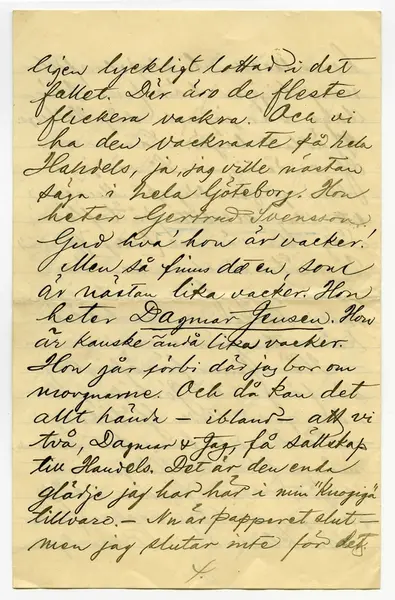 ligen lyckligt lottad i det
fallet. Där äro de fleste
flickera vackra. Och vi
ha den vackraste på hela
Handels, ja, jag ville nästan
säga i hela Göteborg. Hon
heter Gertrud Svensson.
Gud hva' hon är vacker!
Men så finns dä en, som
är nästan lika vacker. Hon
heter Dagmar Jensen. Hon
är kanske ändå lika vacker.
Hon går förbi där jag bor om
morgnarne. Och då kan det
allt hända – ibland – att vi
två, Dagmar & Jag, få sällskap
till Handels. Det är den enda
glädje jag har här i min "knogiga"
tillvaro. – Nu är papperet slut –
men jag slutar inte för det.
4.